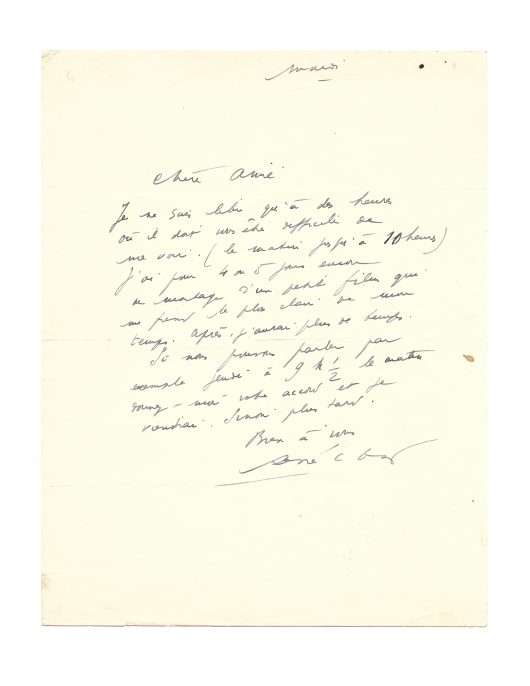 mardi
Chère Amie
Je ne suis libre qu'à des heures
où il doit vous être difficile de
me voir.. (le matin jusqu'à 10 heures)
J'ai pour 4 ou 5 jours encore
un montage d'un petit film qui
me prend le plus clair de mon
temps. Après, j'aurai plus de temps.
Si nous pouvons parler par
exemple jeudi à 9 h ½ le matin
donnez-moi votre accord et je
viendrai. Sinon plus tard.
Bien à vous